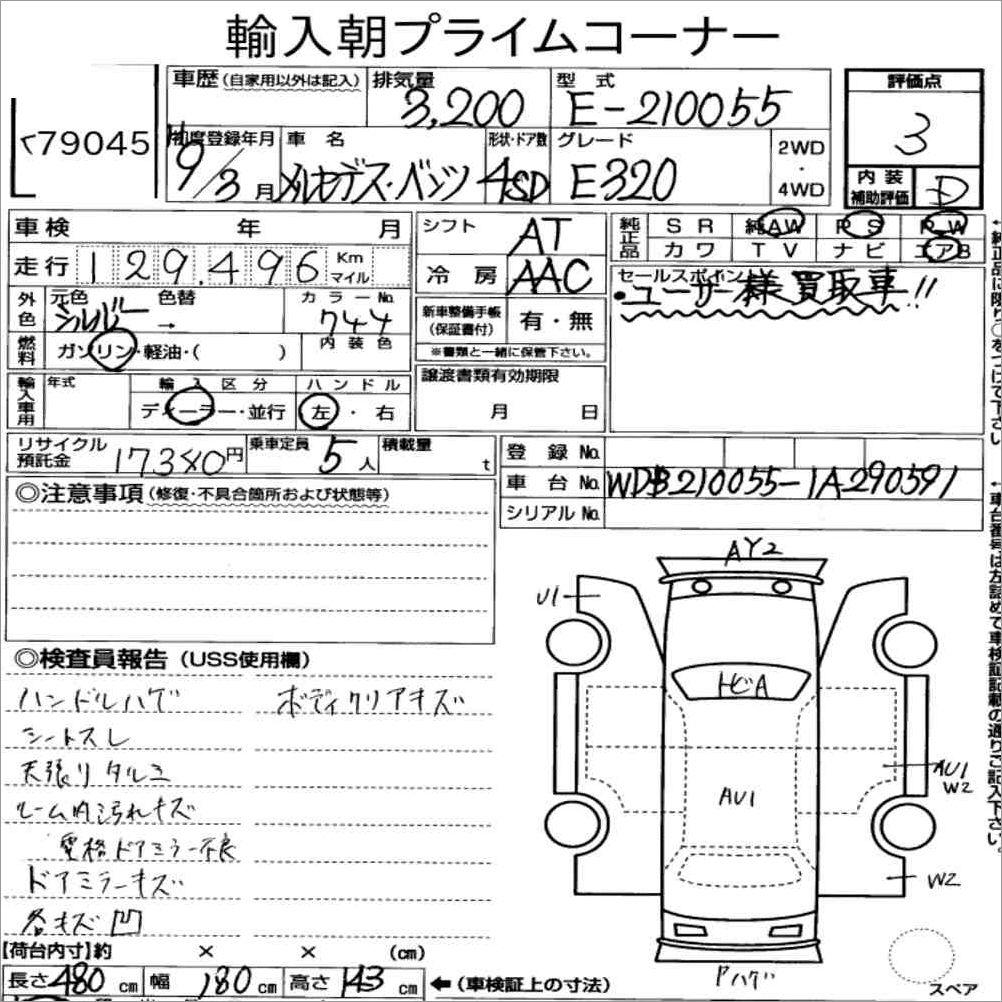 輸入朝プライムコーナー
車歴(自家用以外は記入) 排気量 3,200 型式 E-210055
評価点 3
79045
初度登録年月 H9/3月 車名 メルセデス・ベンツ 形状・ドア数 4SD グレード E320 2WD・4WD
内装補助評価 D
車検 年 月
走行 129,496 Km マイル
シフト AT
冷房 AAC
純正品 SR 純AW PS PW
カワ TV ナビ エアB
セールスポイント
・ユーザー様買取車!!
外色 元色 シルバー 色替 → カラーNo. 744
燃料 ガソリン・軽油・( ) 内装色
新車整備手帳(保証書付) 有・無
※書類と一緒に保管下さい。
輸入車用 年式 輸入区分 ディーラー・並行 ハンドル 左・右
譲渡書類有効期限
月 日
リサイクル預託金 17380円 乗車定員 5人 積載量 t
登録No.
車台No. WDB210055-1A290591
シリアルNo.
◎注意事項(修復・不具合箇所および状態等)
◎検査員報告(USS使用欄)
ハンドルハゲ ボディクリアキズ
シートスレ
天張りタルミ
ルーム内汚れキズ
電格ドアミラー不良
ドアミラーキズ
各キズ凹
AY2
U1
トビA
AU1
AU1
W2
W2
Pハゲ
スペア
【荷台内寸】約 × × (cm)
長さ480cm 幅180cm 高さ143cm ←(車検証上の寸法)
↑純正品に限り○をつけて下さい
↑車台番号は左詰めで車検証記載の通りご記入下さい。